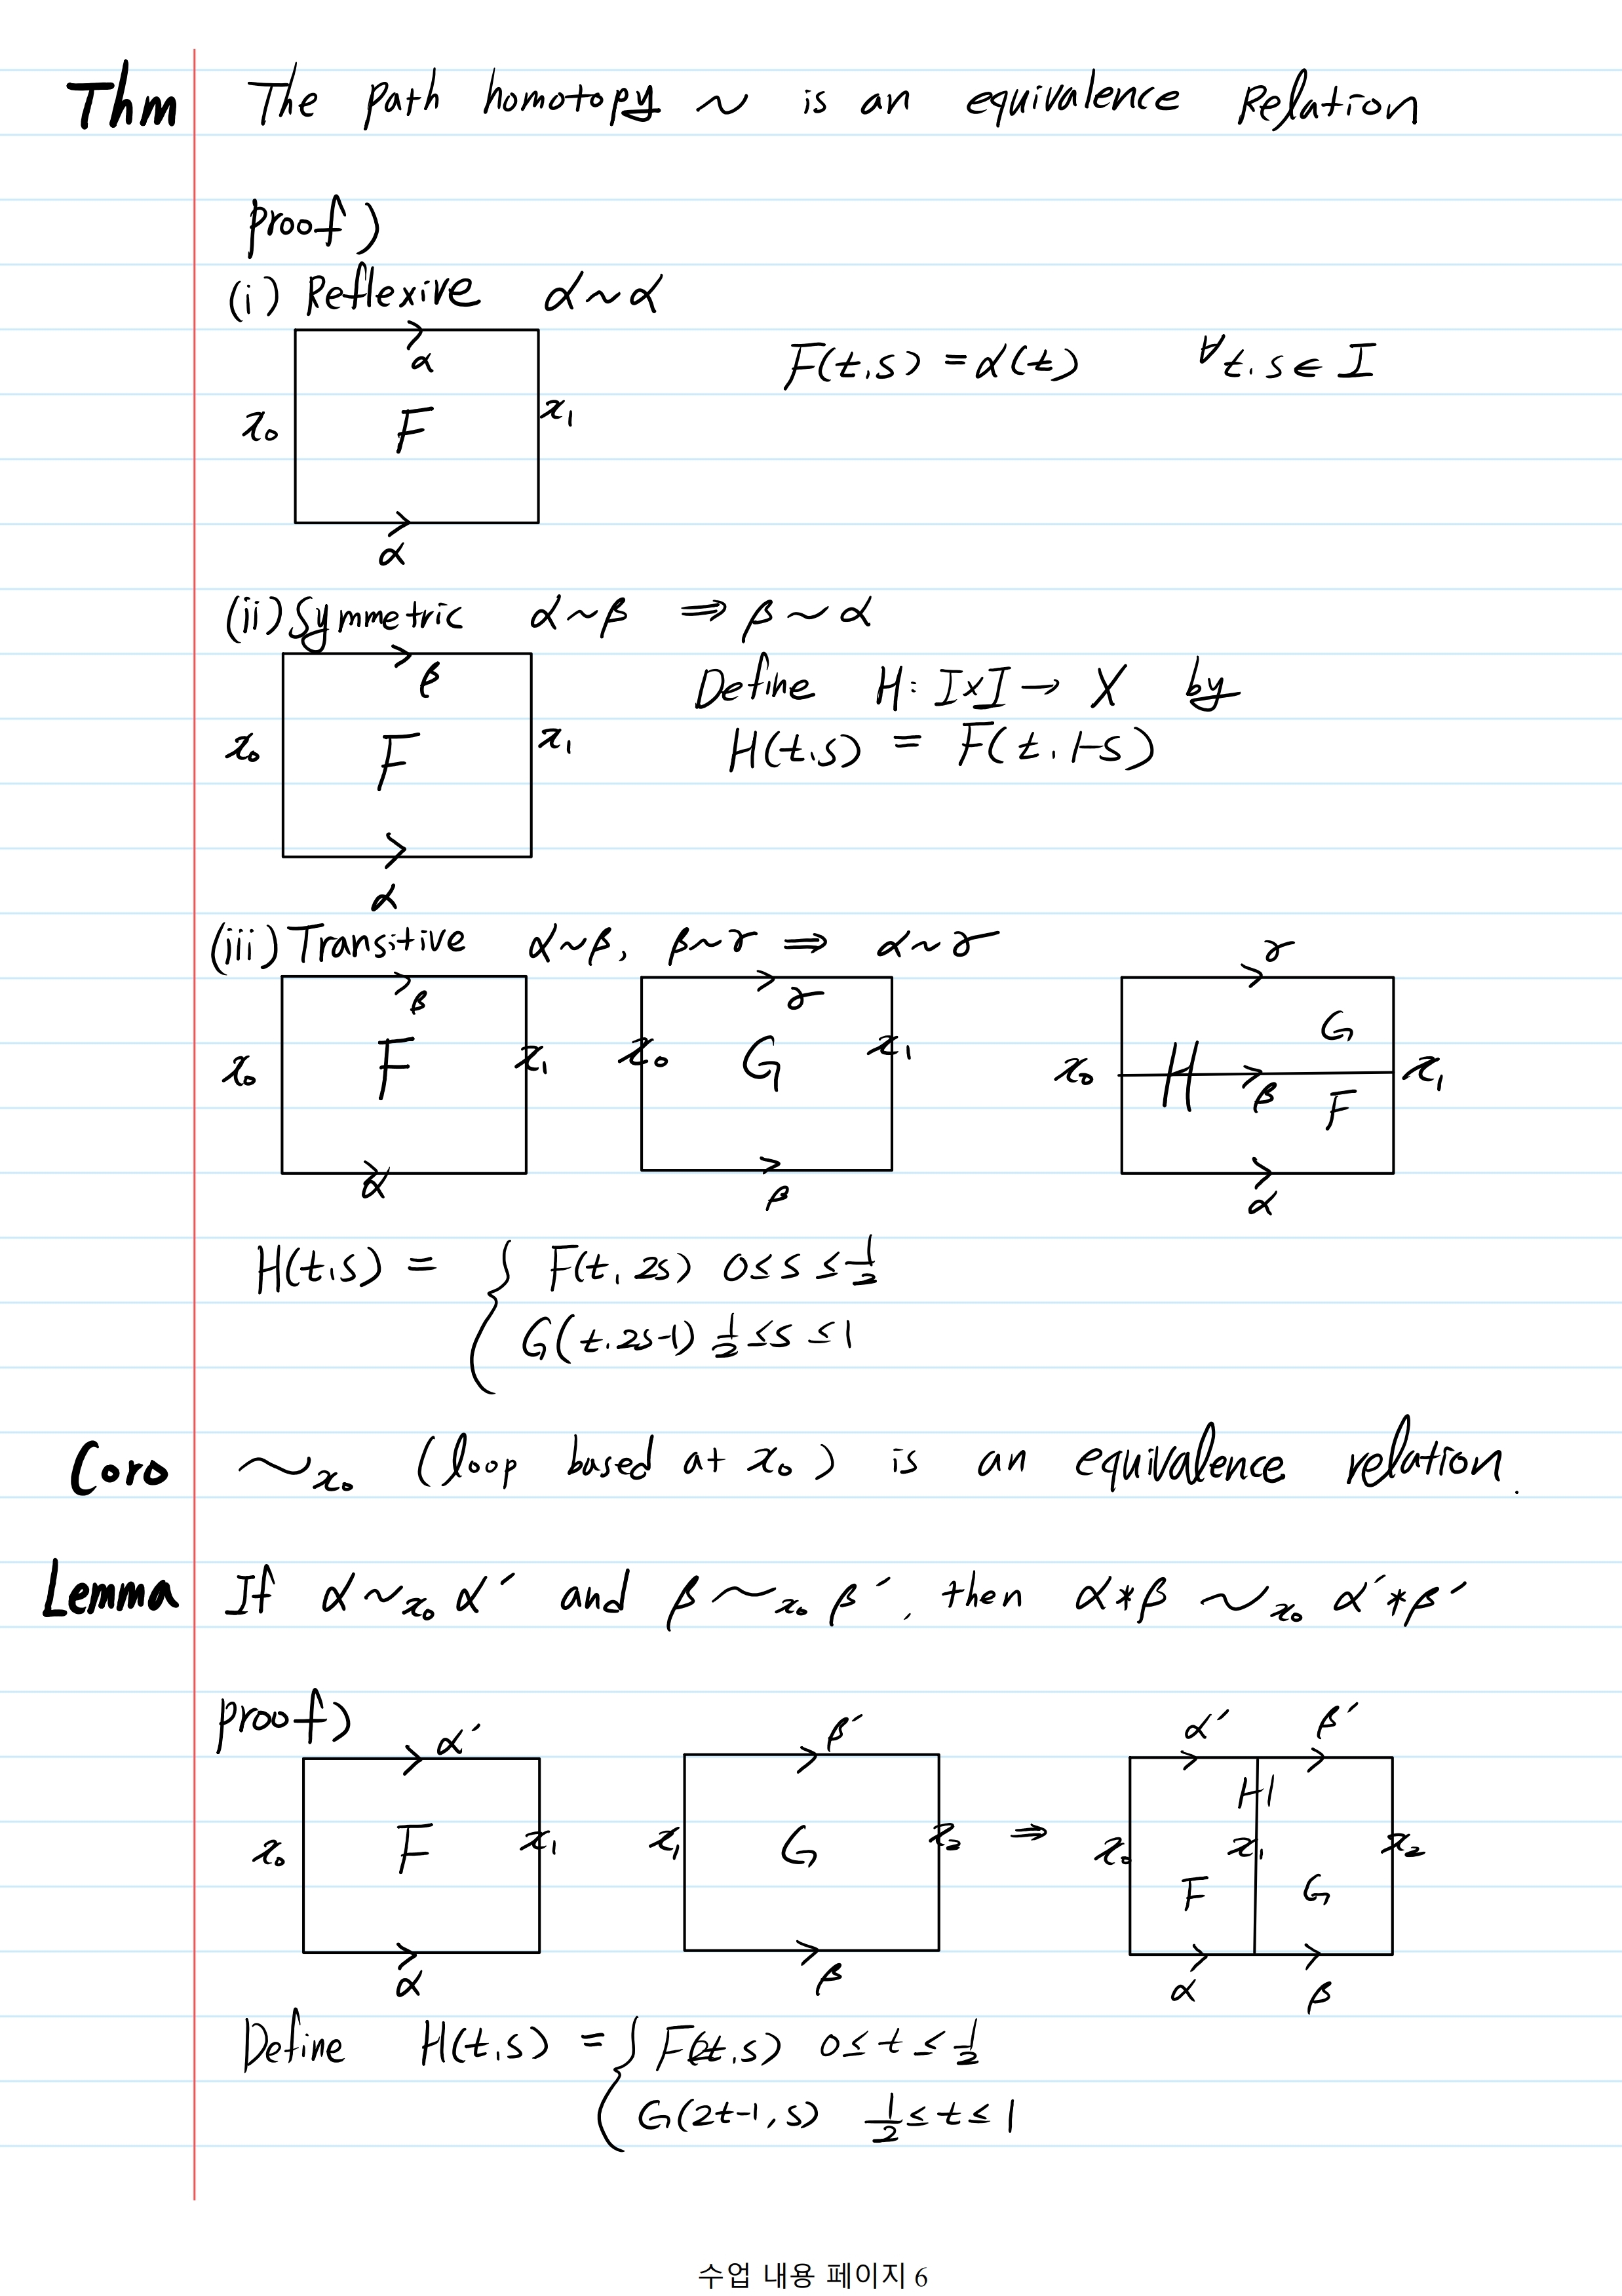 Thm The path homotopy ~ is an equivalence Relation
proof)
(i) Reflexive α~α
α
F(t,s) = α(t) ∀t,s ∈ I
x₀ F x₁
α
(ii) Symmetric α~β ⇒ β~α
β
Define H: I×I → X by
x₀ F x₁
H(t,s) = F(t, 1-s)
α
(iii) Transitive α~β, β~γ ⇒ α~γ
β γ γ
x₀ F x₁ x₀ G x₁ x₀ H β G F x₁
α β α
H(t,s) = { F(t, 2s) 0≤s≤1/2
G(t, 2s-1) 1/2≤s≤1
Coro ~x₀ (loop based at x₀) is an equivalence relation.
Lemma If α ~x₀ α′ and β ~x₀ β′, then α*β ~x₀ α′*β′
proof)
α′ β′ α′ β′
x₀ F x₁ x₁ G x₂ ⇒ x₀ F H x₁ G x₂
α β α β
Define H(t,s) = { F(2t,s) 0≤t≤1/2
G(2t-1,s) 1/2≤t≤1
수업 내용 페이지 6